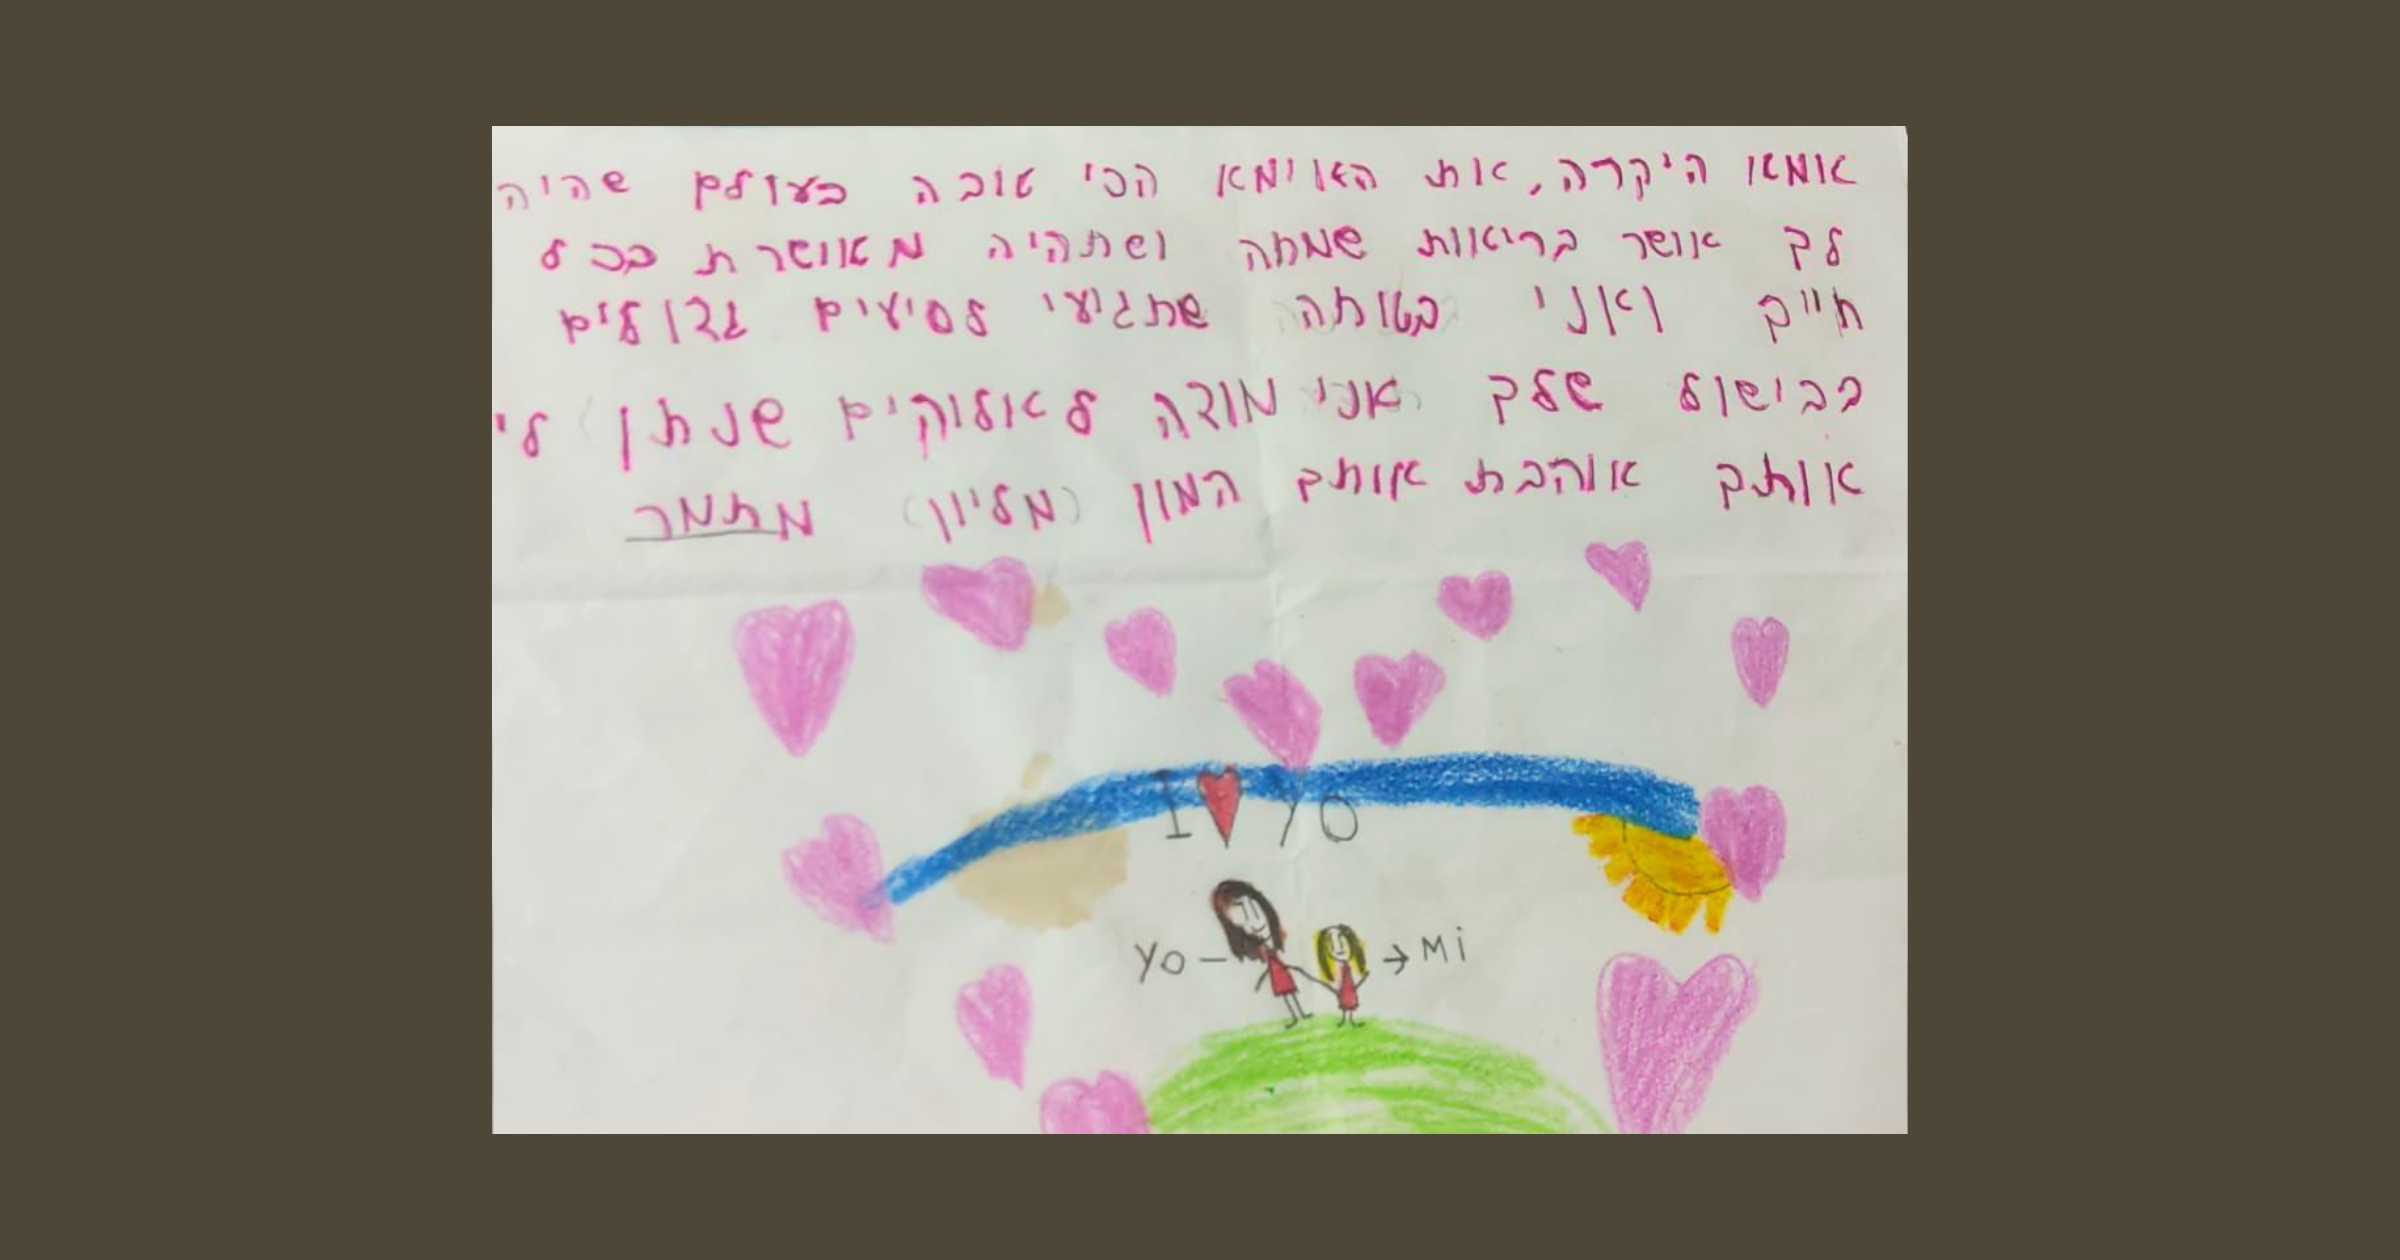 אומאו היקרה, את האוימא הכי טובה בעולם שהיה
לך אושר בריאות שמחה ושתהיה מאושרת בכל
חייך ואני בטוחה שתגיעי לסיעים גדולים
בבישול שלך אני מודה לאלוקים שנתן לי
אותך אוהבת אותך המון (מליון) מתמר
I ♥ YO
Yo – → Mi